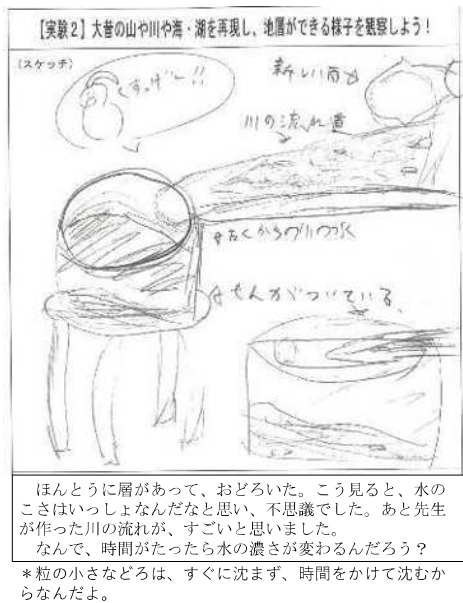 【実験２】大昔の山や川や海・湖を再現し、地層ができる様子を観察しよう！
（スケッチ）
すっげー!!
川の流れ道
せんがついている
ほんとうに層があって、おどろいた。こう見ると、水の
こさはいっしょなんだなと思い、不思議でした。あと先生
が作った川の流れが、すごいと思いました。
なんで、時間がたったら水の濃さが変わるんだろう？
＊粒の小さなどろは、すぐに沈まず、時間をかけて沈むか
らなんだよ。